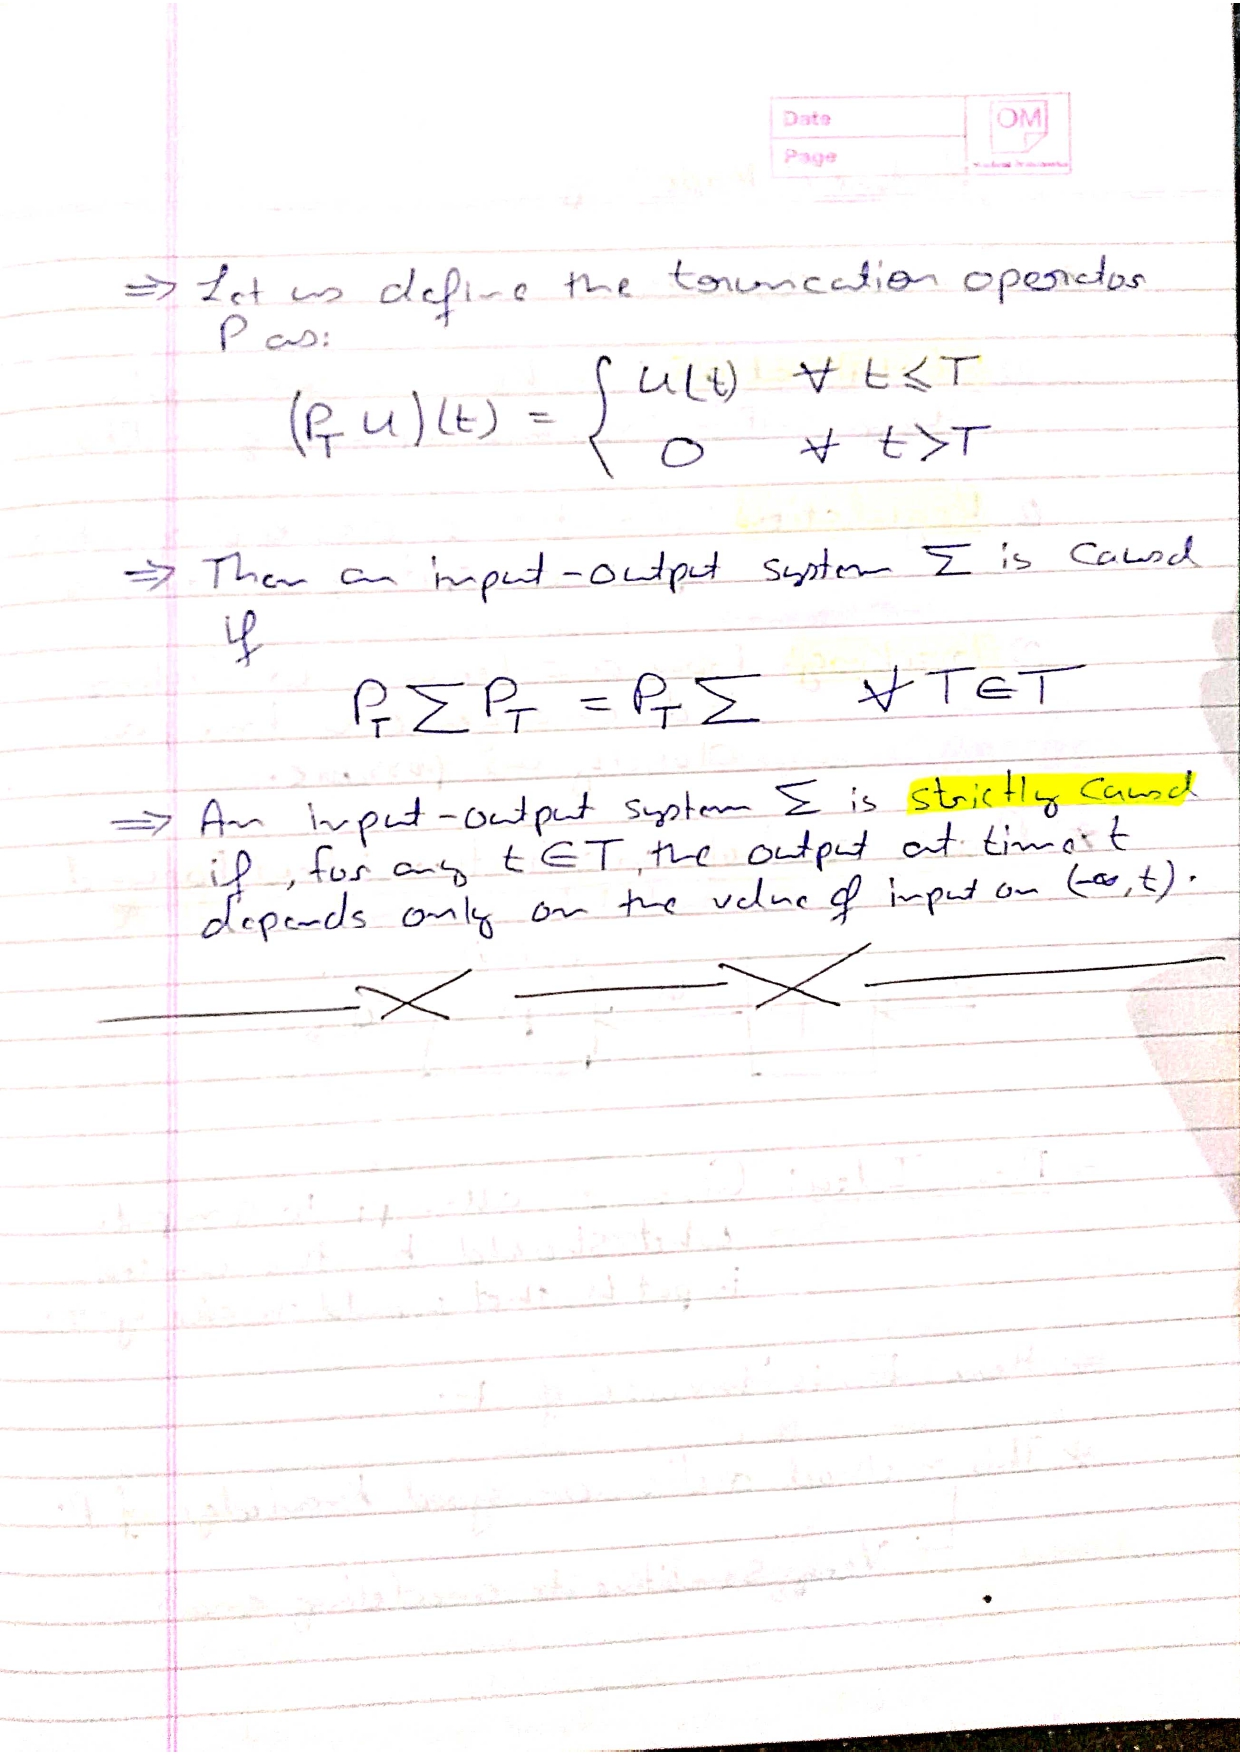 Date
OM
Page
⇒ Let us define the truncation operator
P as:
(P_T u)(t) = { u(t) ∀ t ≤ T
0 ∀ t > T
⇒ Then an input-output system Σ is causal
if
P_T Σ P_T = P_T Σ ∀ T ∈ T
⇒ An input-output system Σ is strictly causal
if, for any t ∈ T, the output at time t
depends only on the value of input on (-∞, t).